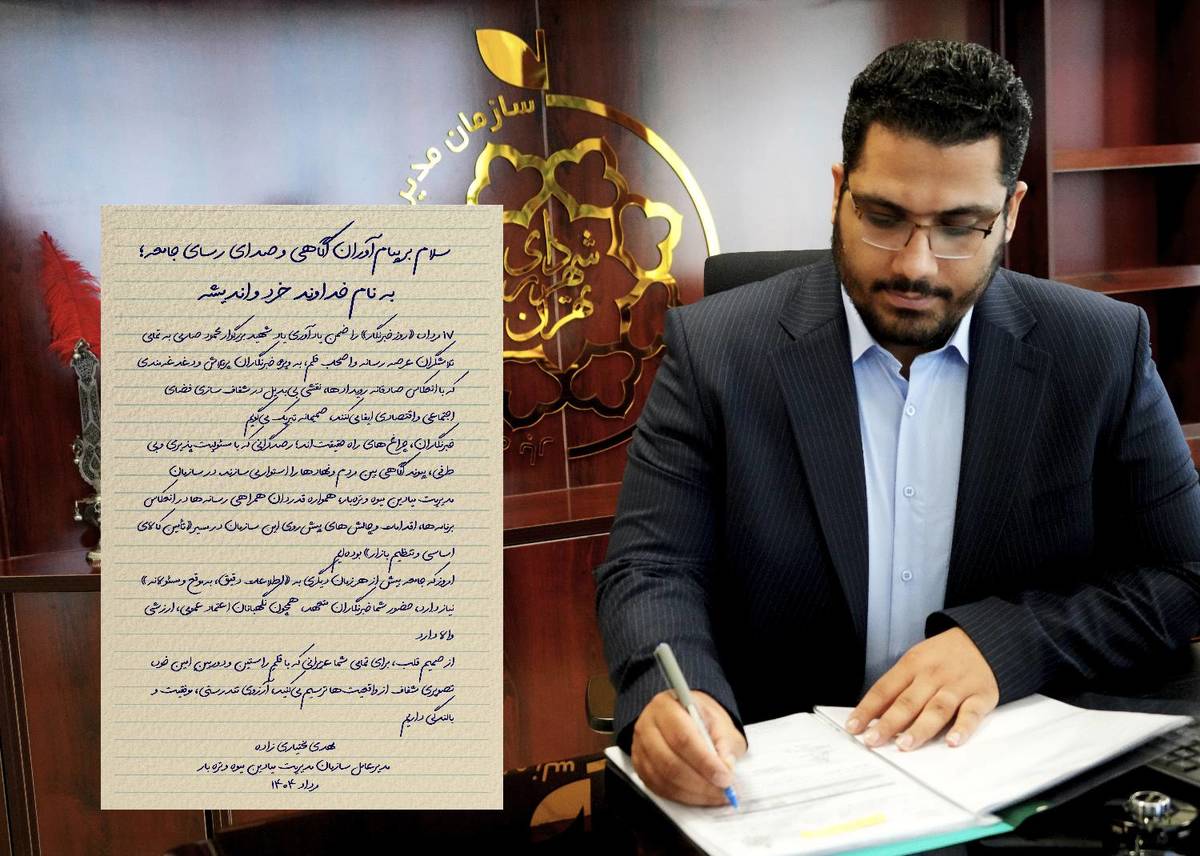 سازمان مدیر
شهرداری
تهران
سلام بر پیام‌آوران آگاهی و صدای رسای جامعه؛
به نام خداوند خرد و اندیشه
۱۷ مرداد، «روز خبرنگار» را ضمن یادآوری یاد شهید بزرگوار محمود صارمی به تمامی
تلاشگران عرصه رسانه و اصحاب قلم، به ویژه خبرنگاران پرتلاش و دغدغه‌مندی
که با انعکاس صادقانه رویدادها، نقشی بی‌بدیل در شفاف سازی فضای
اجتماعی و اقتصادی ایفا می‌کنند، صمیمانه تبریک می‌گویم
خبرنگاران، چراغ‌های راه حقیقت‌اند؛ رصدگرانی که با مسئولیت پذیری و بی
طرفی، پیوند آگاهی بین مردم و نهادها را استوار می‌سازند. در سازمان
مدیریت میادین میوه و تره‌بار، همواره قدردان همراهی رسانه‌ها در انعکاس
برنامه‌ها، اقدامات و چالش‌های پیش روی این سازمان در مسیر «تأمین کالای
اساسی و تنظیم بازار» بوده‌ایم
امروز که جامعه بیش از هر زمان دیگری به «اطلاعات دقیق، به‌موقع و مسئولانه»
نیاز دارد، حضور شما خبرنگاران متعهد، همچون نگهبانان اعتماد عمومی، ارزشی
والا دارد
از صمیم قلب، برای تمامی شما عزیزانی که با قلم راستین و دوربین امین خود،
تصویری شفاف از واقعیت‌ها ترسیم می‌کنید، آرزوی تندرستی، موفقیت و
بالندگی داریم
مهدی بختیاری زاده
مدیرعامل سازمان مدیریت میادین میوه و تره بار
مرداد ۱۴۰۴